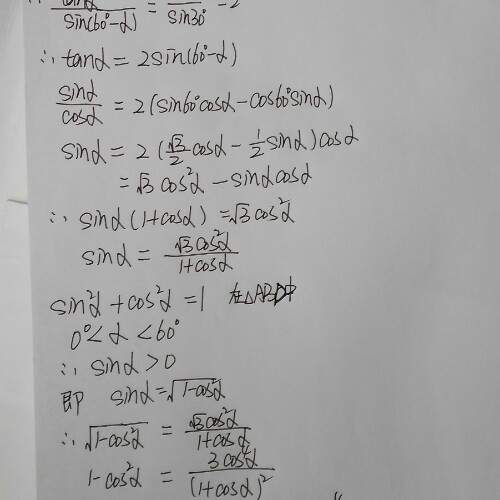 tanα/sin(60°-α) = /sin30° = 2
∴ tanα = 2sin(60°-α)
sinα/cosα = 2(sin60°cosα-cos60°sinα)
sinα = 2(√3/2 cosα - 1/2 sinα)cosα
= √3 cos²α - sinαcosα
∴ sinα(1+cosα) = √3cos²α
sinα = √3cos²α/1+cosα
sin²α + cos²α = 1 在△ABD中
0°<α<60°
∴ sinα>0
即 sinα=√1-cos²α
∴ √1-cos²α = √3cos²α/1+cosα
1-cos²α = 3cos⁴α/(1+cosα)²